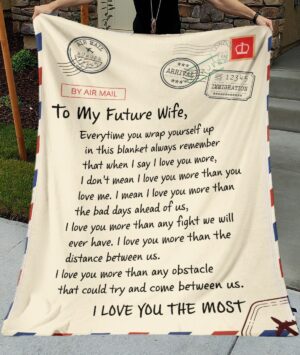 AIR MAIL
LONDON
ARRIVAL
12345
IMMIGRATION
BY AIR MAIL
To My Future Wife,
Everytime you wrap yourself up
in this blanket always remember
that when I say I love you more,
I don't mean I love you more than you
love me. I mean I love you more than
the bad days ahead of us,
I love you more than any fight we will
ever have. I love you more than the
distance between us.
I love you more than any obstacle
that could try and come between us.
I LOVE YOU THE MOST